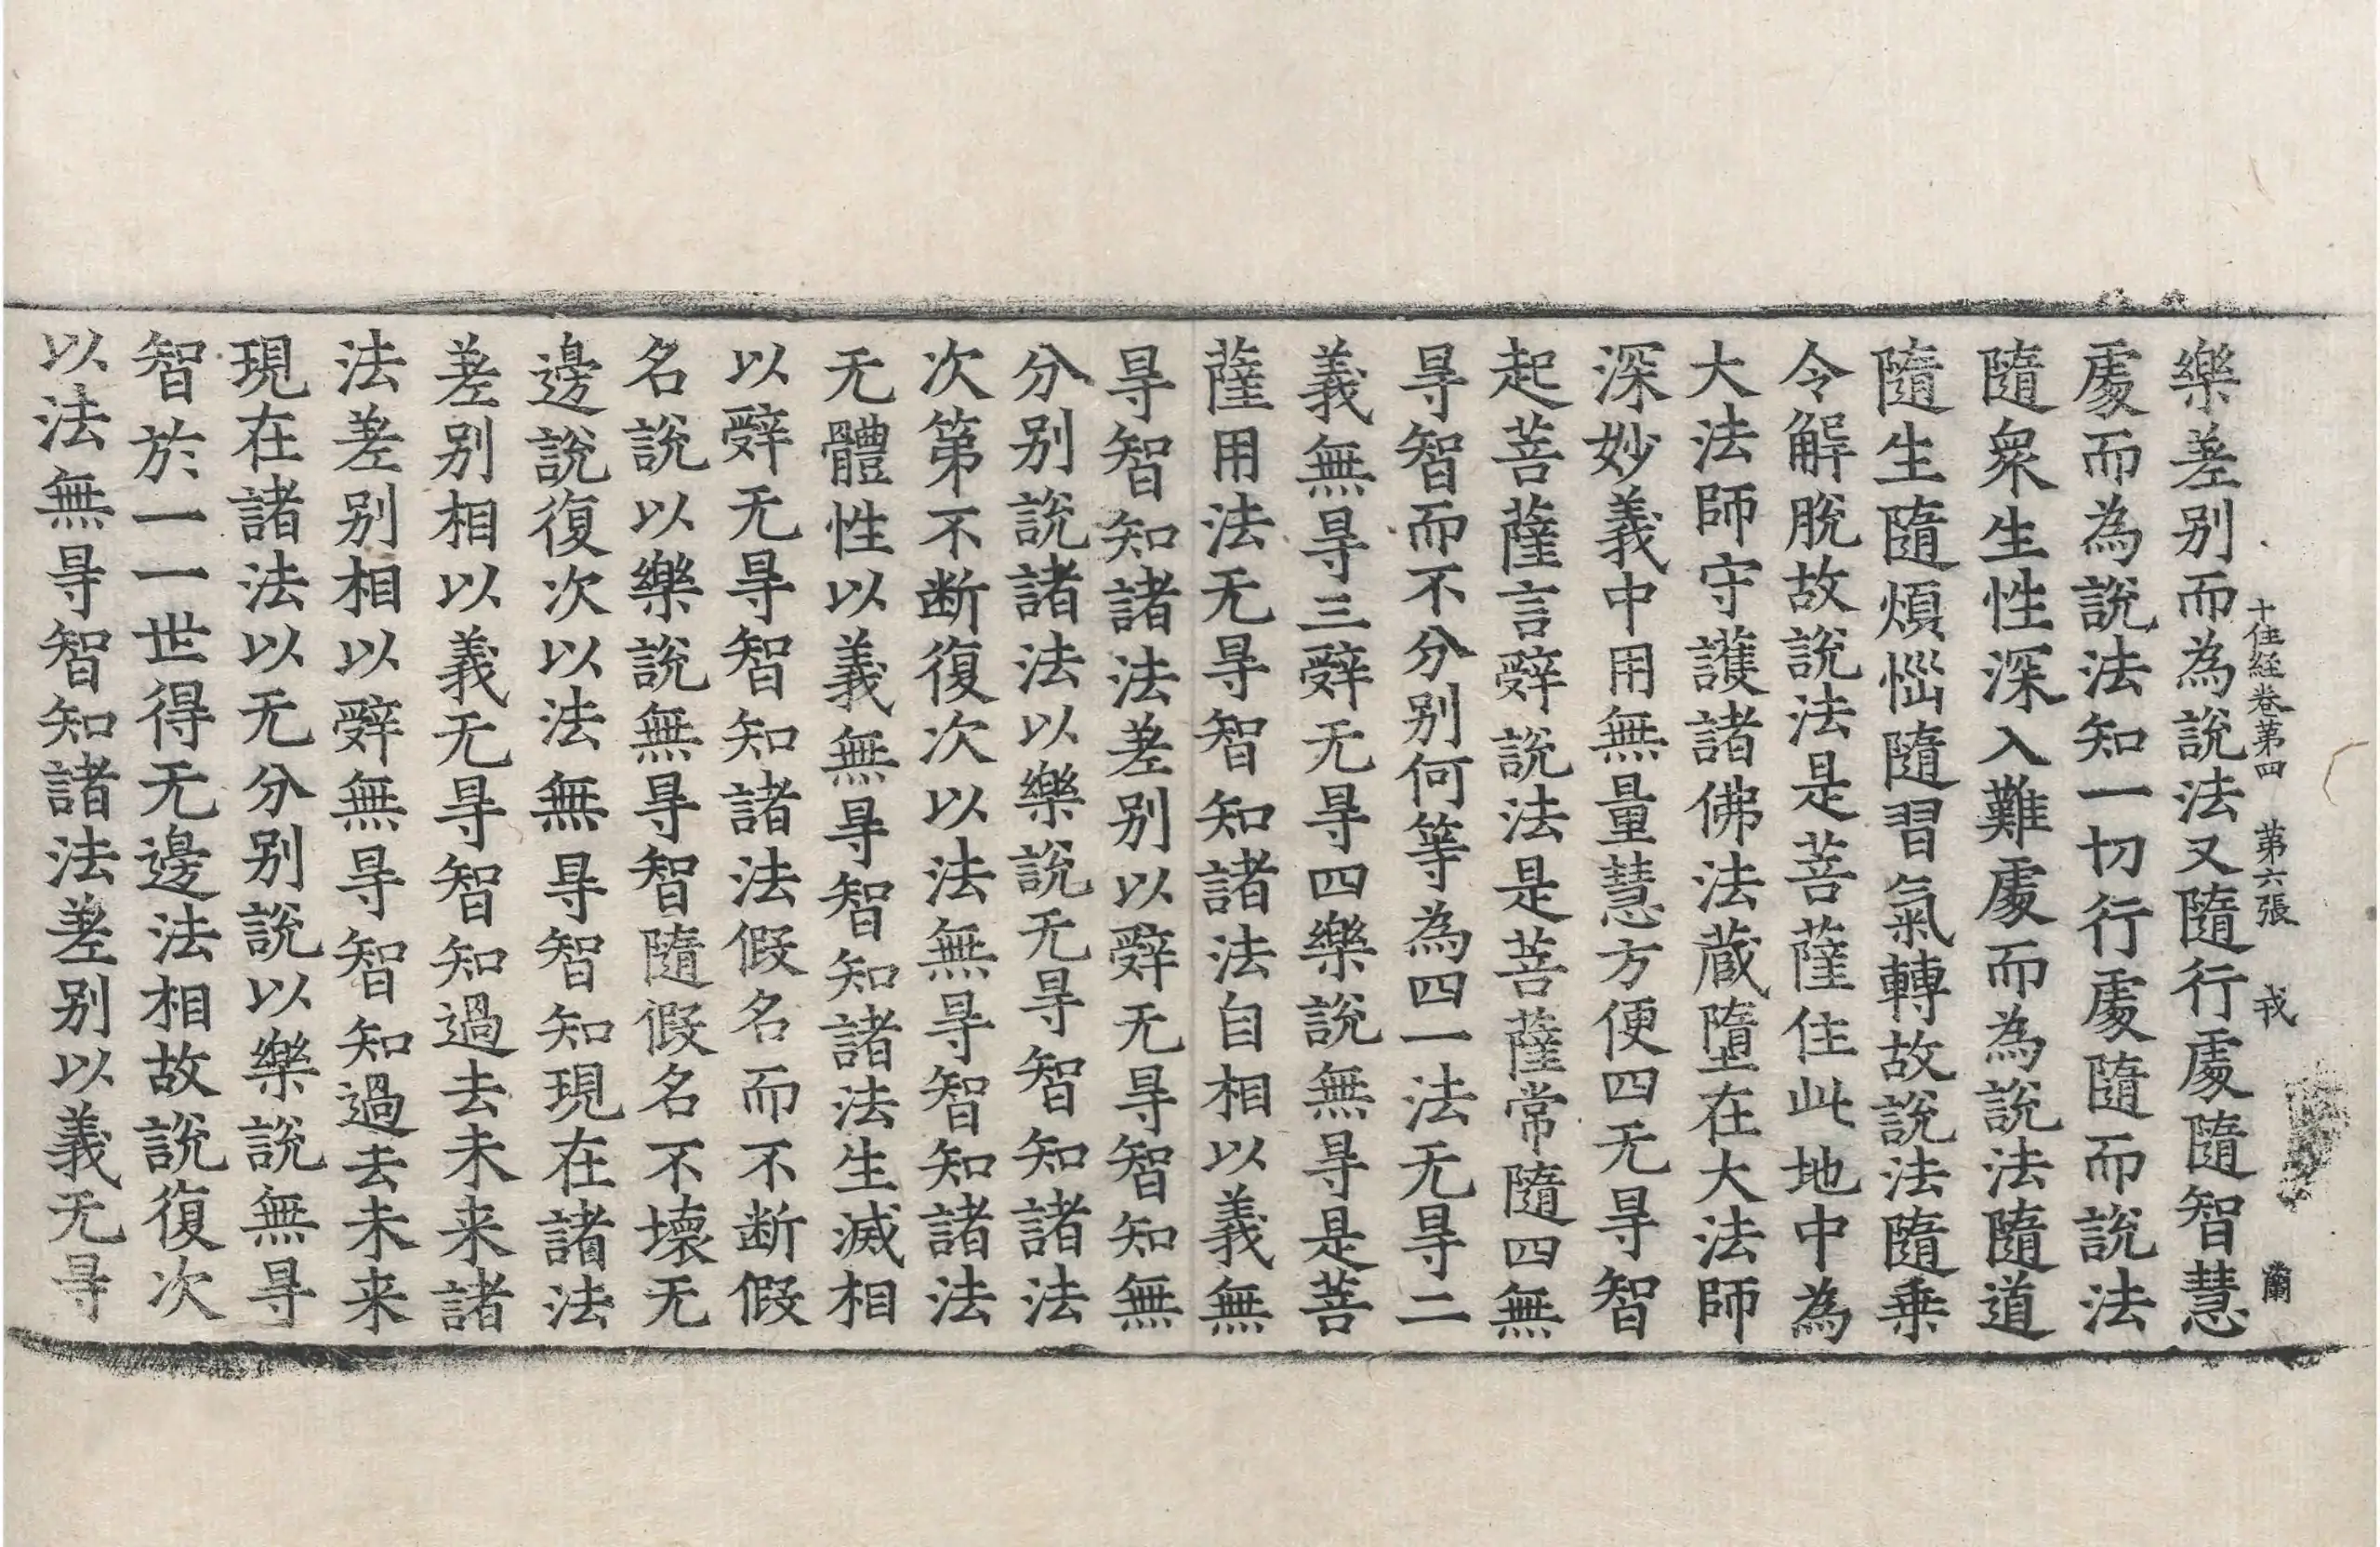 十住經卷第四　第六張　戎
蘭
樂差别而為說法又隨行處隨智慧
處而為說法知一切行處隨而說法
隨衆生性深入難處而為說法隨道
隨生隨煩惱隨習氣轉故說法隨乗
令解脫故說法是菩薩住此地中為
大法師守護諸佛法蔵墮在大法師
深妙義中用無量慧方便四无㝵智
起菩薩言辤說法是菩薩常隨四無
㝵智而不分别何等為四一法无㝵二
義無㝵三辤无㝵四樂說無㝵是菩
薩用法无㝵智知諸法自相以義無
㝵智知諸法差别以辤无㝵智知無
分别說諸法以樂說无㝵智知諸法
次第不断復次以法無㝵智知諸法
无體性以義無㝵智知諸法生滅相
以辤无㝵智知諸法假名而不断假
名說以樂說無㝵智隨假名不壞无
邊說復次以法無㝵智知現在諸法
差别相以義无㝵智知過去未来諸
法差别相以辤無㝵智知過去未来
現在諸法以无分别說以樂說無㝵
智於一一世得无邊法相故說復次
以法無㝵智知諸法差别以義无㝵